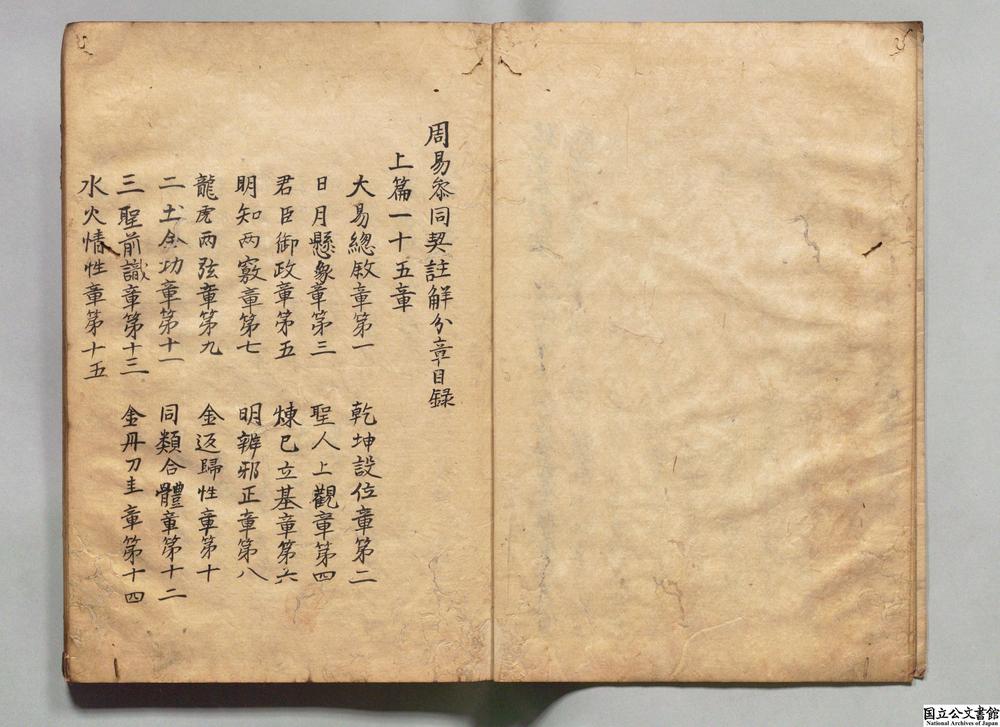 周易叅同契註解分章目錄
上篇一十五章
大易總敘章第一 乾坤設位章第二
日月懸象章第三 聖人上觀章第四
君臣御政章第五 煉已立基章第六
明知兩竅章第七 明辨邪正章第八
龍虎两弦章第九 金返歸性章第十
二土全功章第十一 同類合體章第十二
三聖前識章第十三 金丹刀圭章第十四
水火情性章第十五
国立公文書館
National Archives of Japan